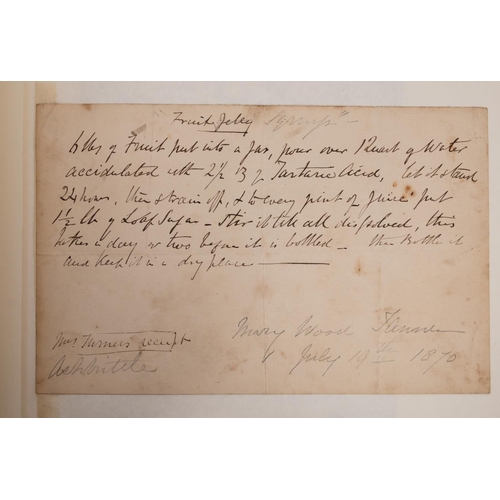 Fruit Jelly Syrup" -
6 lbs of Fruit put into a jar, pour over 1 Quart of Water
accidulated with 2½ ℥ of Tartaric Acid, let it stand
24 hours, then strain off, & to every pint of juice put
1½ lb of Loaf Sugar - Stir it till all dissolved, this
a day or two before it is bottled - then Bottle it
and Keep it in a dry place
Mrs Turners receipt
Mary Wood
July 19th 1870